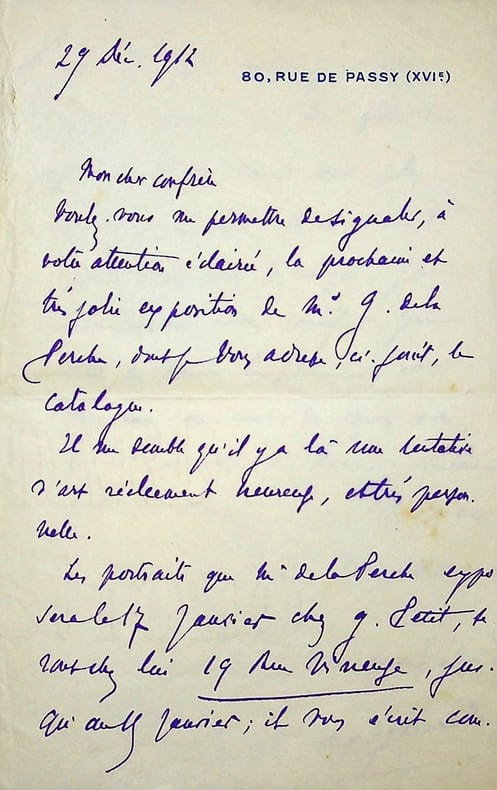 29 Déc. 1912
80, RUE DE PASSY (XVIe)
Mon cher confrère
Voulez-vous me permettre de signaler, à
votre attention éclairée, la prochaine et
très jolie exposition de Mr G. de la
Perche, dont je vous adresse, ci-joint, le
catalogue.
Il me semble qu'il y a là une tentative
d'art réellement heureuse, et très person-
nelle.
Les portraits que Mr de la Perche expo
sera le 17 Janvier chez G. Petit, se
ront chez lui 19 Rue Vineuse, jus-
qu'au 15 Janvier ; il vous écrit com-